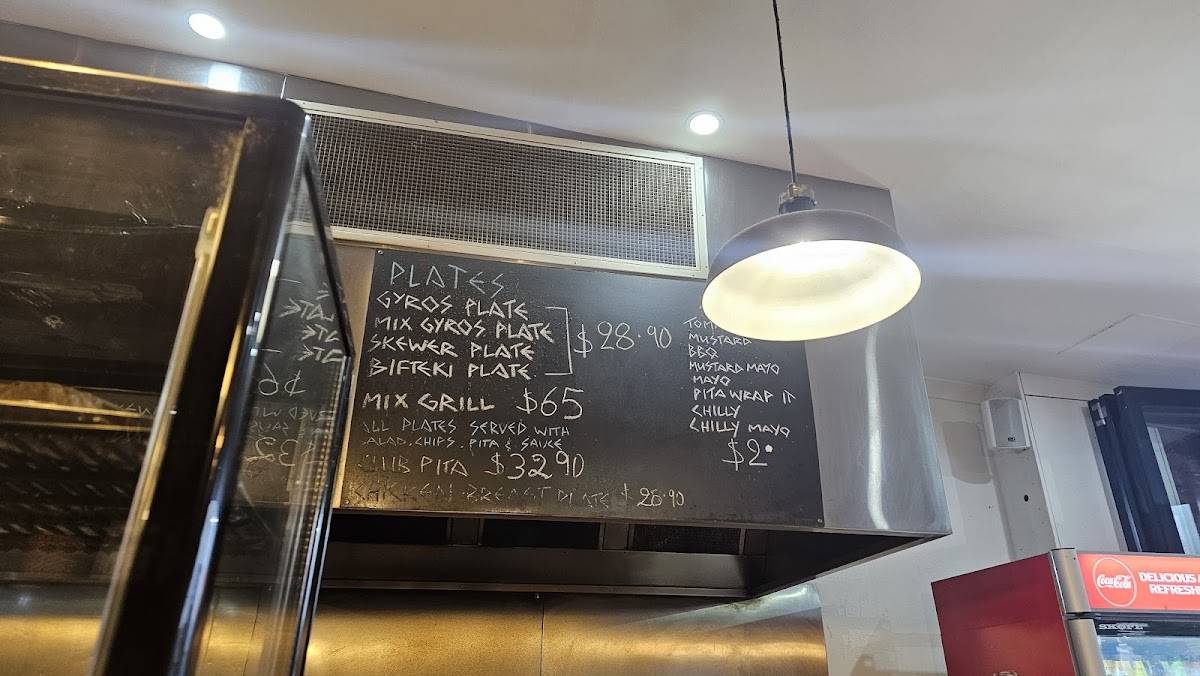 PLATES
GYROS PLATE
MIX GYROS PLATE
SKEWER PLATE
BIFTEKI PLATE
$28.90
MIX GRILL $65
ALL PLATES SERVED WITH
SALAD, CHIPS, PITA & SAUCE
PITA $32.90
BREAST PLATE $28.90
MUSTARD
BBQ
MUSTARD MAYO
MAYO
PITA WRAP IT
CHILLY
CHILLY MAYO
$2.
Coca-Cola
DELICIOUS
SKOPE